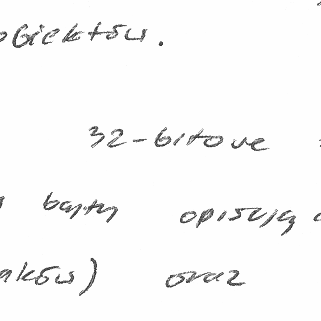 obiektów.
32-bitowe
bajty opisują
aków) oraz